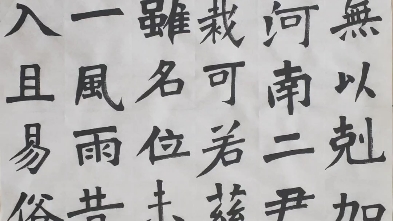 無以剋加
河南二尹
栽可若慈
雖名位未
一風雨昔
入且易俗